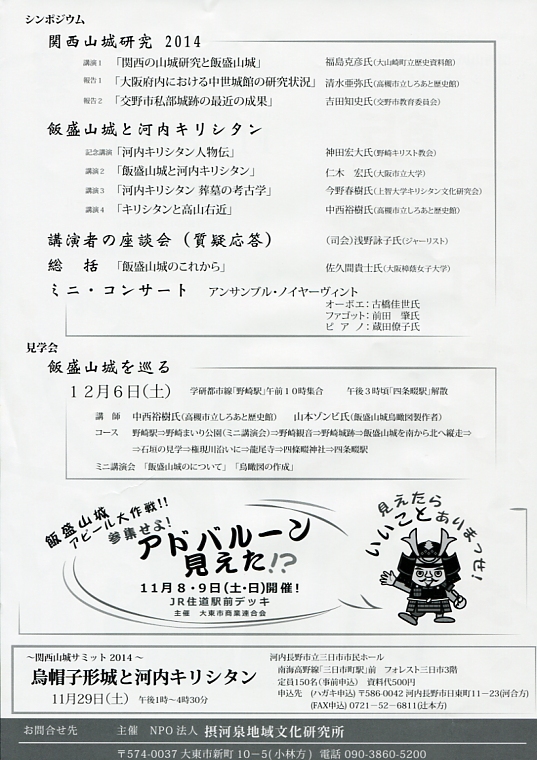 シンポジウム
関西山城研究 2014
講演1 「関西の山城研究と飯盛山城」 福島克彦氏(大山崎町立歴史資料館)
報告1 「大阪府内における中世城館の研究状況」 清水亜弥氏(高槻市立しろあと歴史館)
報告2 「交野市私部城跡の最近の成果」 吉田知史氏(交野市教育委員会)
飯盛山城と河内キリシタン
記念講演 「河内キリシタン人物伝」 神田宏大氏(野崎キリスト教会)
講演2 「飯盛山城と河内キリシタン」 仁木 宏氏(大阪市立大学)
講演3 「河内キリシタン 葬墓の考古学」 今野春樹氏(上智大学キリシタン文化研究会)
講演4 「キリシタンと高山右近」 中西裕樹氏(高槻市立しろあと歴史館)
講演者の座談会(質疑応答) (司会)浅野詠子氏(ジャーリスト)
総 括 「飯盛山城のこれから」 佐久間貴士氏(大阪樟蔭女子大学)
ミニ・コンサート アンサンブル・ノイヤーヴィント
オーボエ：古橋佳世氏
ファゴット：前田 肇氏
ピ ア ノ：蔵田僚子氏
見学会
飯盛山城を巡る
12月6日(土) 学研都市線「野崎駅」午前10時集合 午後3時頃「四条畷駅」解散
講 師 中西裕樹氏(高槻市立しろあと歴史館) 山本ゾンビ氏(飯盛山城鳥瞰図製作者)
コース 野崎駅⇒野崎まいり公園(ミニ講演会)⇒野崎観音⇒野崎城跡⇒飯盛山城を南から北へ縦走⇒
⇒石垣の見学⇒権現川沿いに⇒龍尾寺⇒四條畷神社⇒四条畷駅
ミニ講演会 「飯盛山城のについて」「鳥瞰図の作成」
飯盛山城
アピール大作戦!!
参集せよ!
アドバルーン
見えた!?
11月8・9日(土・日)開催!
JR住道駅前デッキ
主催 大東市商業連合会
見えたら
いいことありまっせ!
～関西山城サミット2014～
烏帽子形城と河内キリシタン
11月29日(土) 午後1時～4時30分
河内長野市立三日市市民ホール
南海高野線「三日市町駅」前 フォレスト三日市3階
定員150名(事前申込) 資料代500円
申込先 (ハガキ申込)〒586-0042 河内長野市日東町11－23(河合方)
(FAX申込)0721－52－6811(辻本方)
お問合せ先 主催 NPO法人 摂河泉地域文化研究所
〒574-0037 大東市新町10－5(小林方) 電話 090-3860-5200